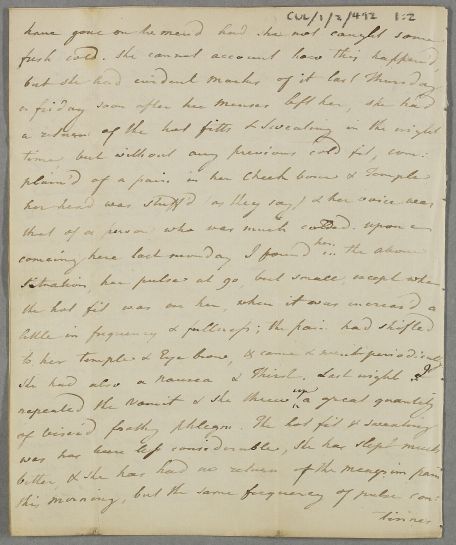 CUL/1/2/492 1:2
have gone on the mend had she not caught some
fresh cold. She cannot account how this happened,
but she had evident marks of it last Thursday
& friday soon after her menses left her, she had
a return of the hot fitts & sweating in the night
time but without any previous cold fit, com:
plain'd of a pain in her cheek bone & Temple
her head was stuff'd (as they say) & her voice was
that of a person who was much colded. upon
comeing here last monday I found her in the above
situation, her pulse at 90, but small, except when
the hot fit was on her, when it was increas'd a
little in frequency & fullness; the pain had shifted
to her temple & Eye brow, & came & went periodically
she had also a nausea & Thirst. Last night I
repeated the vomit & she threw up a great quantity
of viscid frothy phlegm. The hot fit & sweating
was has been less considerable, she has slept much
better, & she has had no return of the megrim pain
this morning, but the same frequency of pulse con:
tinues